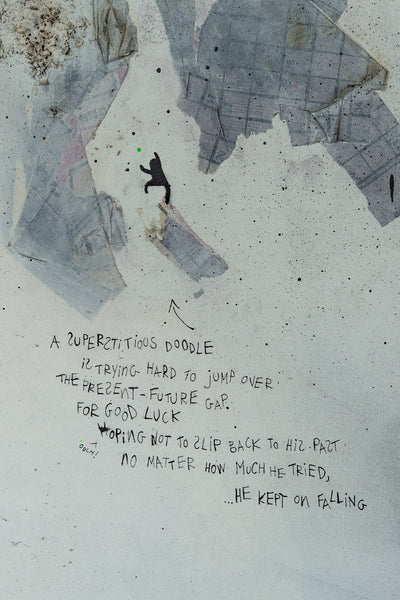 A SUPERSTITIOUS DOODLE
IS TRYING HARD TO JUMP OVER
THE PRESENT-FUTURE GAP.
FOR GOOD LUCK
HOPING NOT TO SLIP BACK TO HIS PAST
OUCH!
NO MATTER HOW MUCH HE TRIED,
...HE KEPT ON FALLING